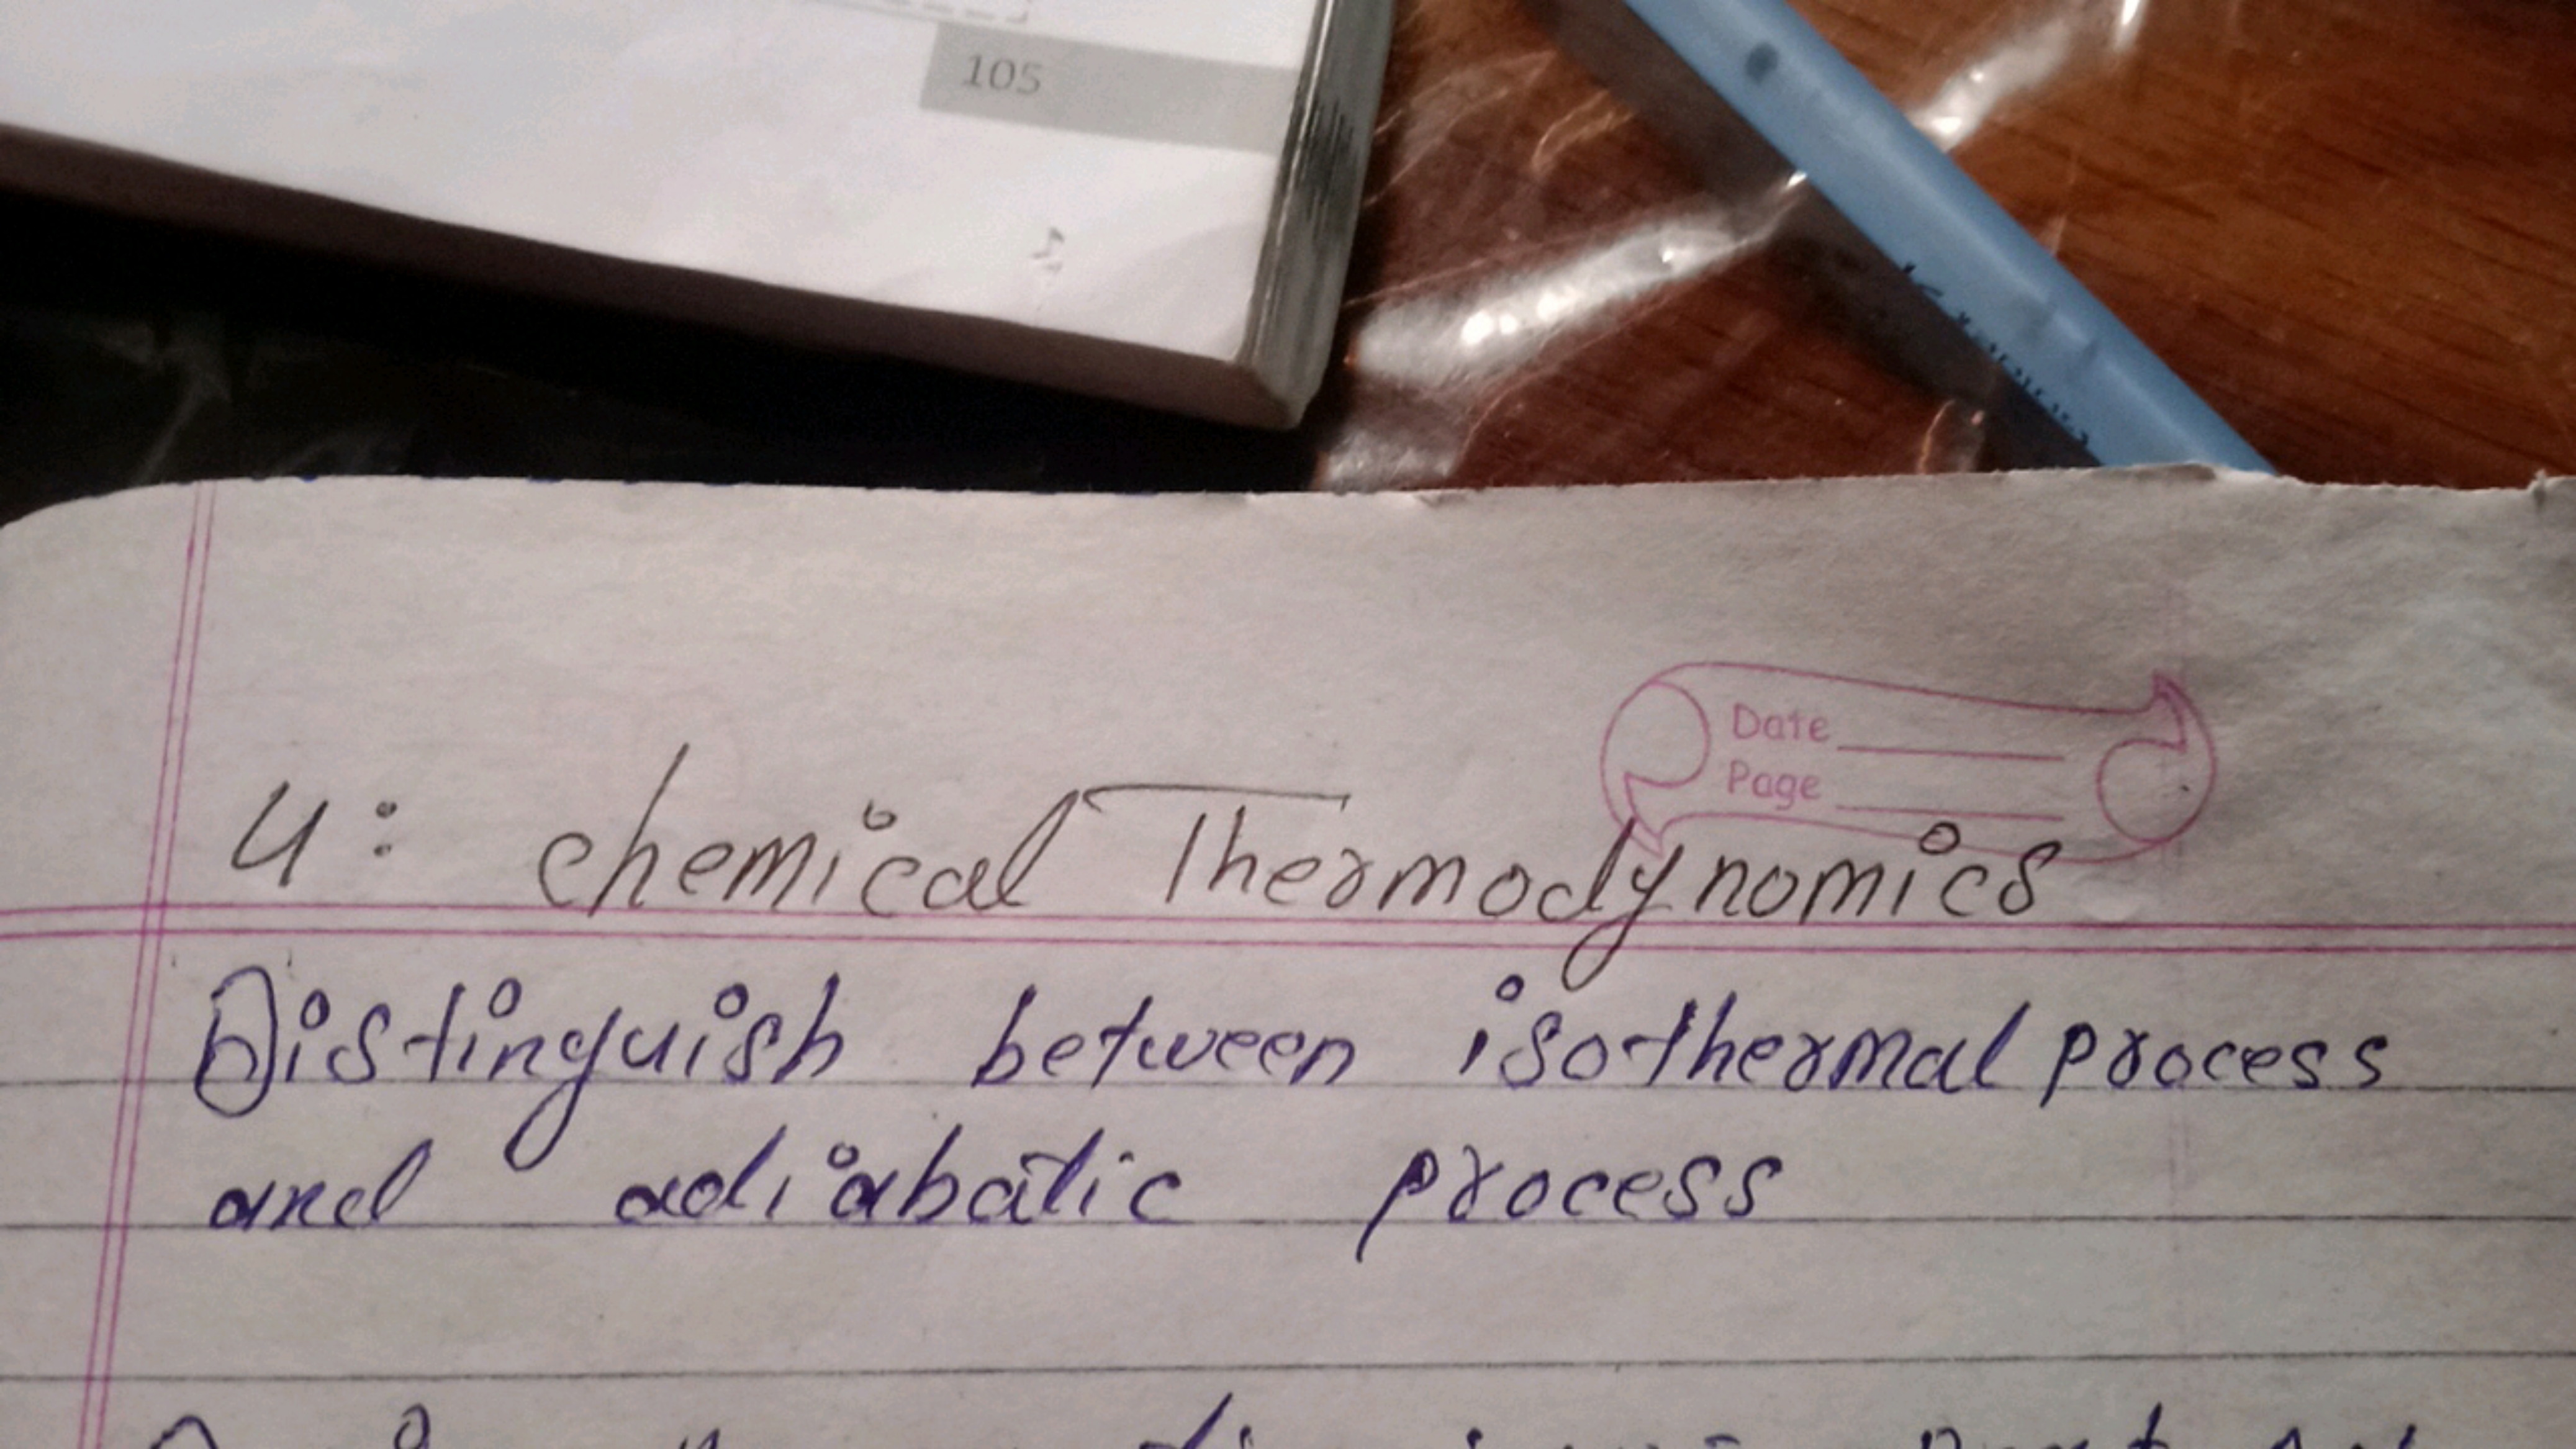 105
Date
Page
4: chemical Thermodynomics
Distinguish between isothermal process
and adiabatic process